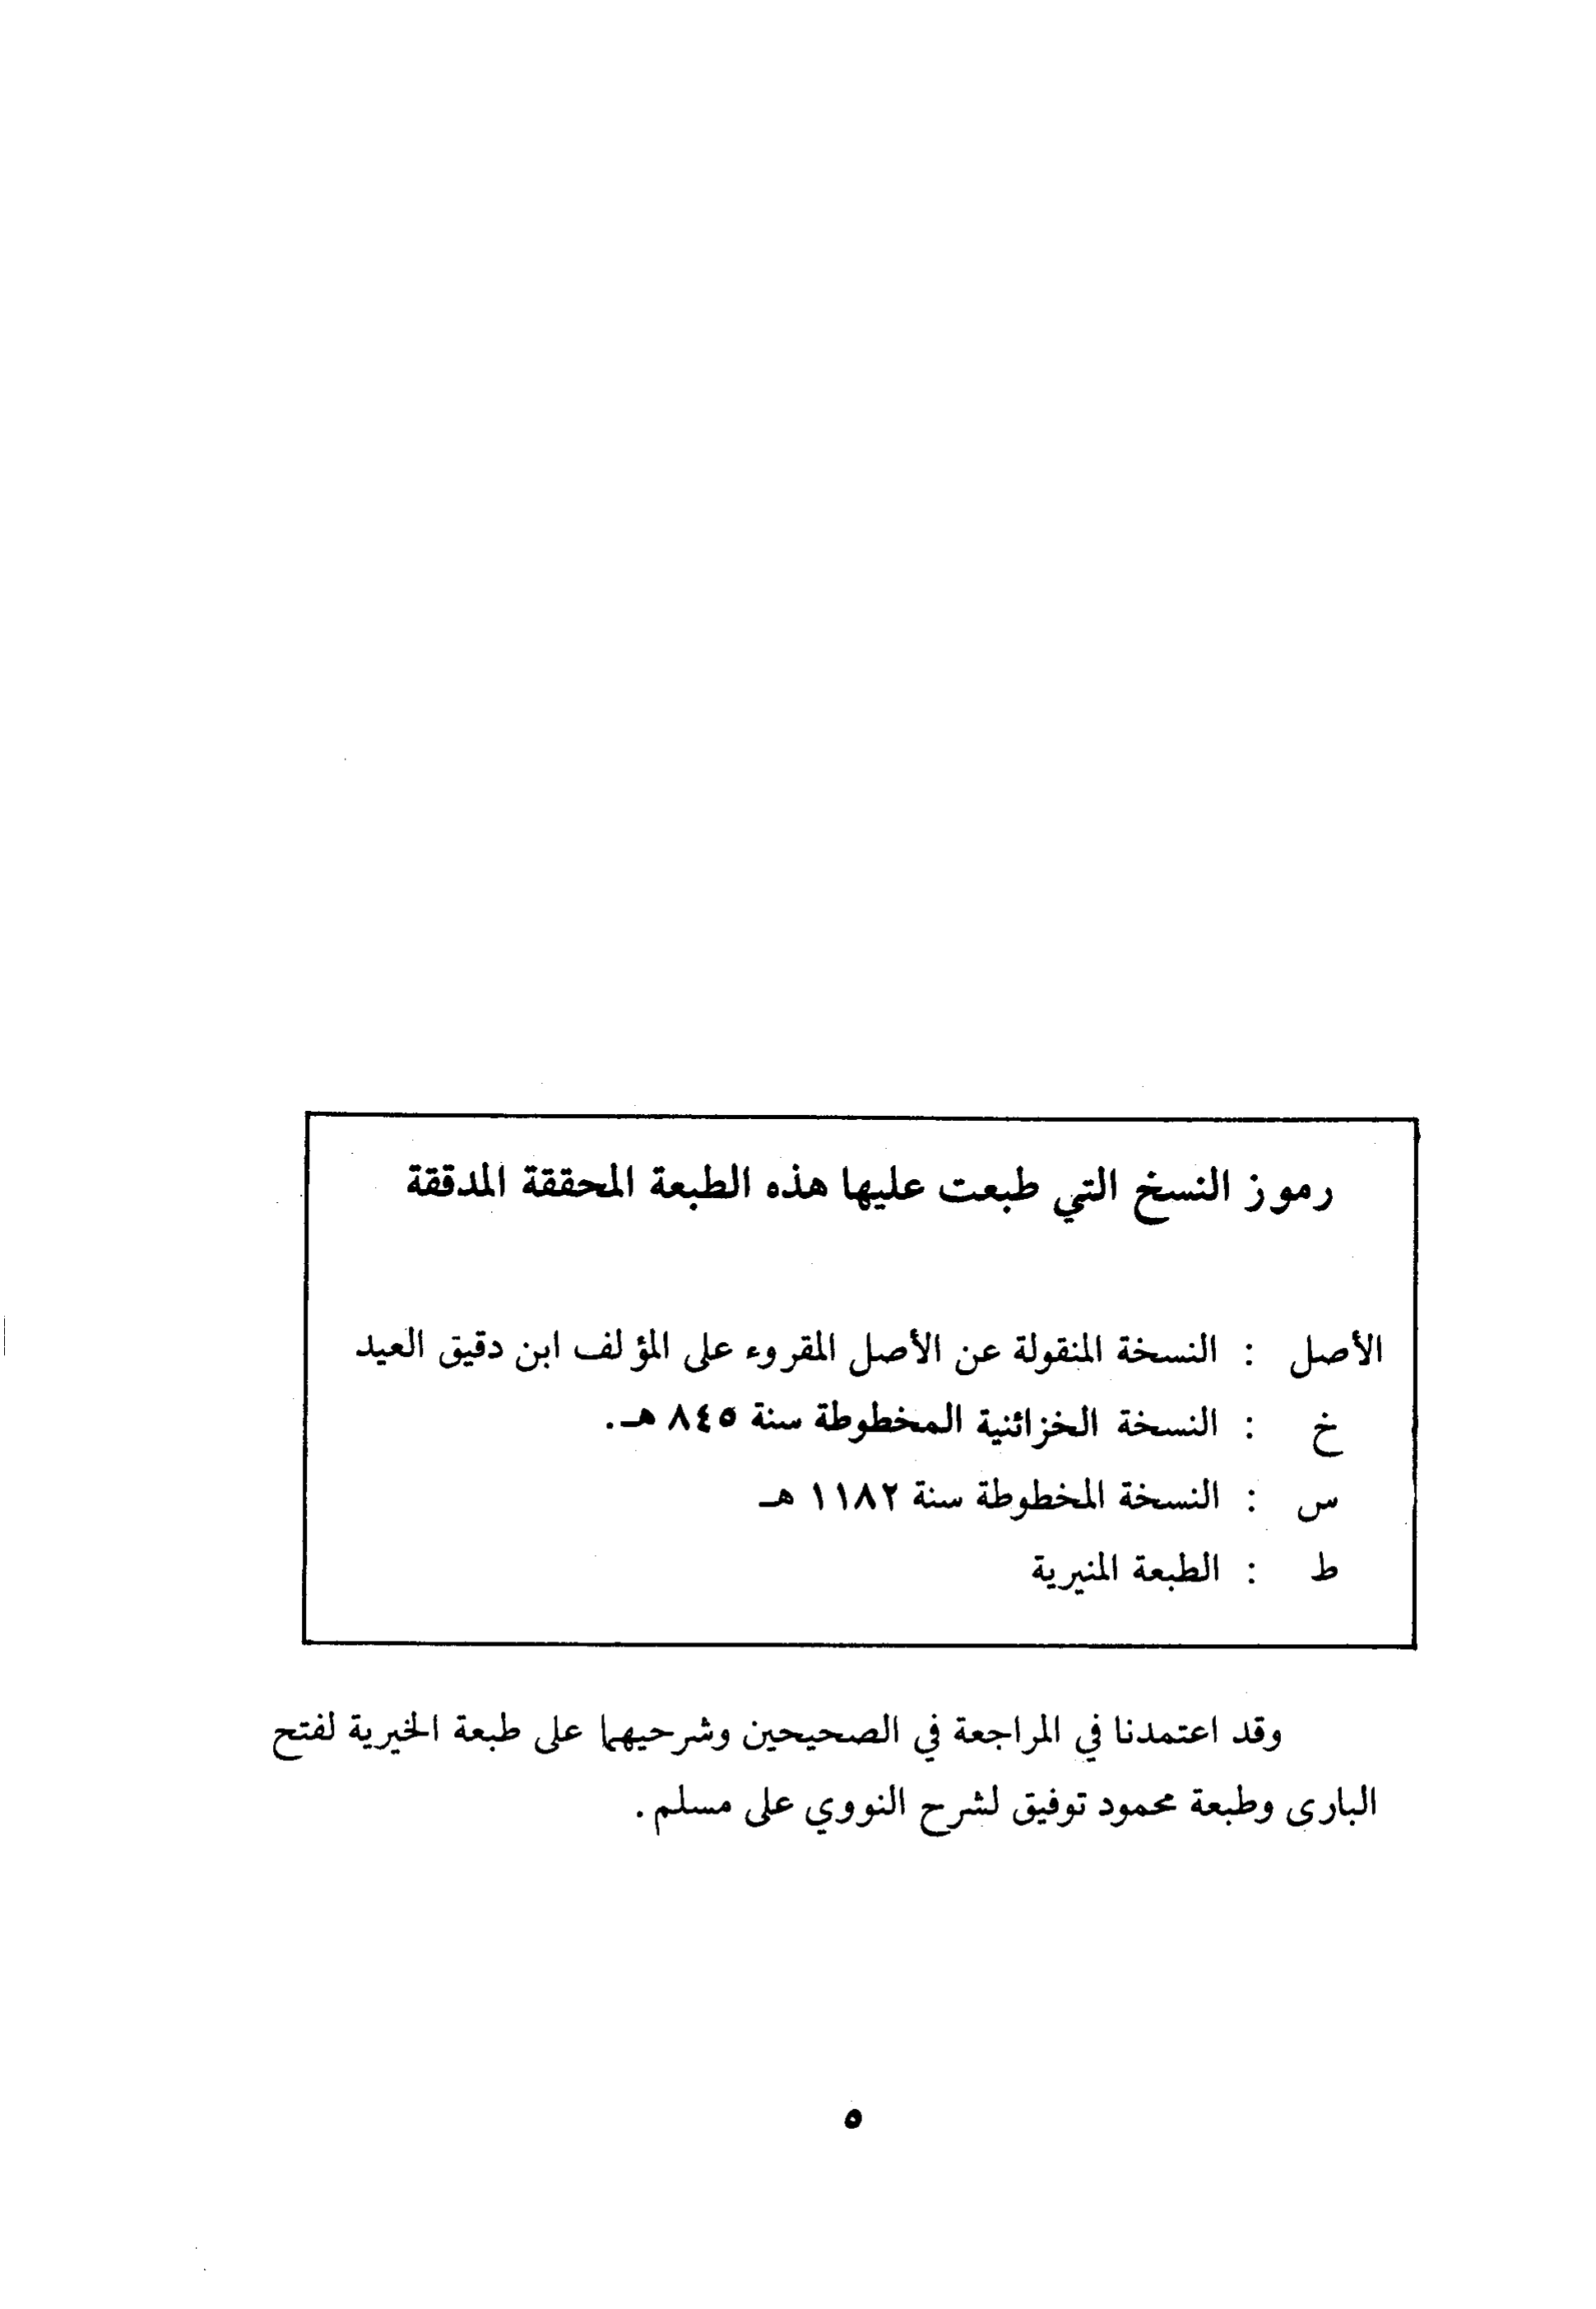 رموز النسخ التي طبعت عليها هذه الطبعة المحققة المدققة
الأصل : النسخة المنقولة عن الأصل المقروء على المؤلف ابن دقيق العيد
خ : النسخة الخزائنية المخطوطة سنة ٨٤٥ هـ.
س : النسخة المخطوطة سنة ١١٨٢ هـ
ط : الطبعة المنيرية
وقد اعتمدنا في المراجعة في الصحيحين وشرحيهما على طبعة الخيرية لفتح
البارى وطبعة محمود توفيق لشرح النووي على مسلم.
٥